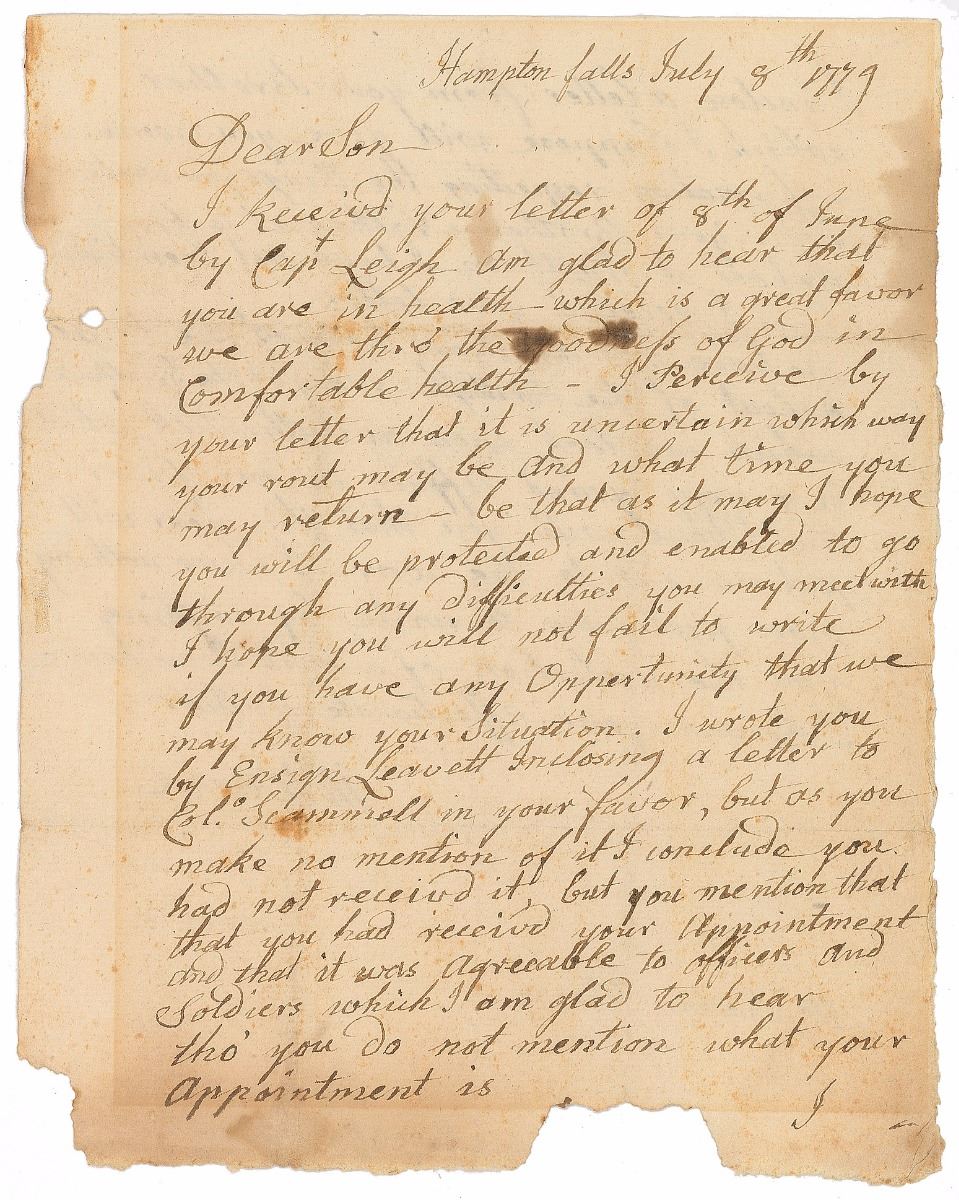 Hampton falls July 8th 1779
Dear Son
I Receivd your letter of 8th of June
by Capt Leigh am glad to hear that
you are in health - which is a great favor
we are thrô the goodness of God in
Comfortable health - I Perceive by
your letter that it is uncertain which way
your rout may be and what time you
may return - be that as it may I hope
you will be protected and enabled to go
through any difficulties you may meet with
I hope you will not fail to write
if you have any Oppertunity that we
may know your Situation. I wrote you
by Ensign Leavett Inclosing a letter to
Col.o Scammell in your favor, but as you
make no mention of it I conclude you
had not receivd it, but you mention that
that you had receivd your Appointment
and that it was Agreeable to officers and
Soldiers which I am glad to hear
tho' you do not mention what your
Appointment is
I